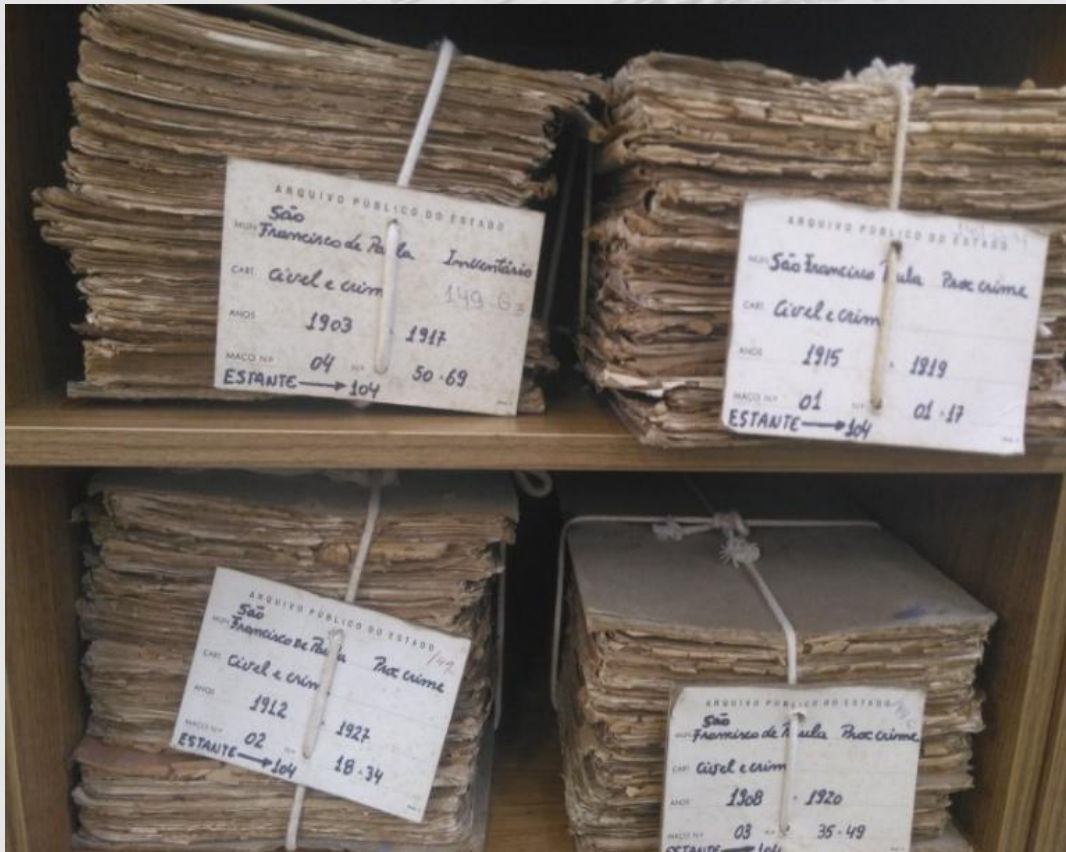 ARQUIVO PÚBLICO DO ESTADO
São
MUN. Francisco de Paula Inventário
CART. Civel e crim 149-G3
ANOS 1903 . 1917
MAÇO Nº 04 Nº 50-69
ESTANTE → 104
ARQUIVO PÚBLICO DO ESTADO
MUN. São Francisco Paula Proc crime
CART. Civel e crim
ANOS 1915 . 1919
MAÇO Nº 01 Nº 01-17
ESTANTE → 104
ARQUIVO PÚBLICO DO ESTADO
São
MUN. Francisco de Paula Proc crime
CART. Civel e crim
ANOS 1912 - 1927
MAÇO Nº 02 Nº 18-34
ESTANTE → 104
ARQUIVO PÚBLICO DO ESTADO
São
MUN. Francisco de Paula Proc crime
CART. Civel e crim
ANOS 1908 - 1920
MAÇO Nº 03 Nº 35-49
ESTANTE → 104